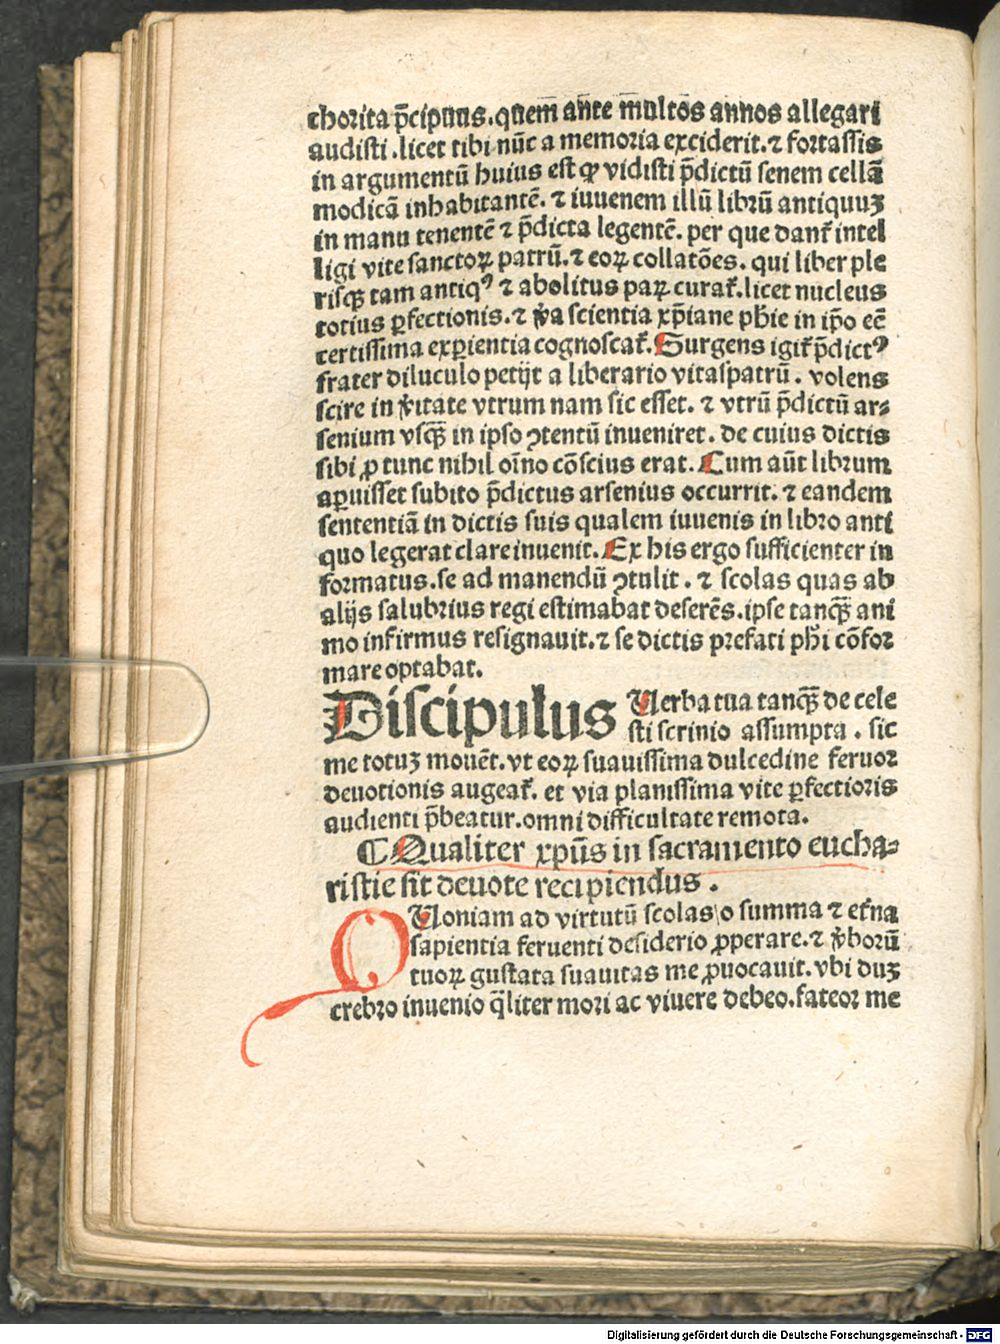 chorita p̄cipuus.quem ante multos annos allegari
audisti.licet tibi nūc a memoria exciderit.⁊ fortassis
in argumentū huius est ꝙ vidisti p̄dictū senem cellā
modicā inhabitantē. ⁊ iuuenem illū librū antiquuꝫ
in manu tenentē ⁊ p̄dicta legentē. per que dant᷑ intel
ligi vite sanctoꝝ patrū.⁊ eoꝝ collatōes. qui liber ple
risqꝫ tam antiqꝰ ⁊ abolitus paꝝ curat᷑.licet nucleus
totius ꝑfectionis.⁊ v̄a scientia xp̄iane ph̄ie in ip̄o eē
certissima exꝑientia cognoscat᷑.Surgens igit᷑ p̄dictꝰ
frater diluculo petijt a liberario vitaspatrū. volens
scire in v̄itate vtrum nam sic esset. ⁊ vtrū p̄dictū ar⸗
senium vsqꝫ in ipso ꝯtentū inueniret. de cuius dictis
sibi ꝓ tunc nihil oīno cōscius erat. Cum aūt librum
aꝑuisset subito p̄dictus arsenius occurrit. ⁊ eandem
sententiā in dictis suis qualem iuuenis in libro anti
quo legerat clare inuenit. Ex his ergo sufficienter in
formatus.se ad manendū ꝯtulit. ⁊ scolas quas ab
alijs salubrius regi estimabat deserēs.ipse tanqꝫ ani
mo infirmus resignauit.⁊ se dictis prefati ph̄i cōfor
mare optabat.
Discipulus Uerba tua tanqꝫ de cele
sti scrinio assumpta . sic
me totuꝫ mouēt.vt eoꝝ suauissima dulcedine feruor
deuotionis augeat᷑. et via planissima vite ꝑfectioris
audienti p̄beatur.omni difficultate remota.
¶ Qualiter xp̄us in sacramento eucha⸗
ristie sit deuote recipiendus .
QUoniam ad virtutū scolas o summa ⁊ et᷑na
sapientia feruenti desiderio ꝓperare.⁊ v̄borū
tuoꝝ gustata suauitas me ꝓuocauit.vbi duꝫ
crebro inuenio q̄liter mori ac viuere debeo.fateor me
Digitalisierung gefördert durch die Deutsche Forschungsgemeinschaft - DFG